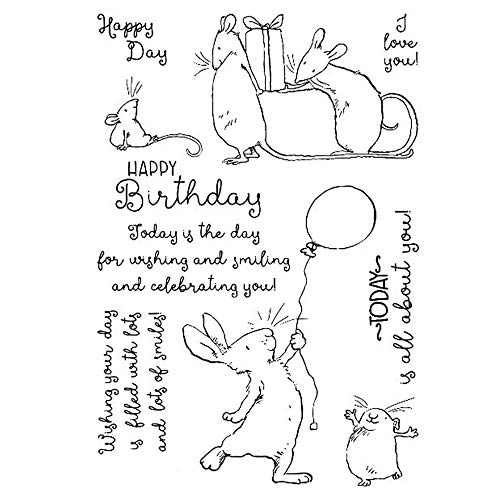 Happy
Day
I
love
you!
HAPPY
Birthday
Today is the day
for wishing and smiling
and celebrating you!
TODAY
is all about you!
Wishing your day
is filled with lots
and lots of smiles!